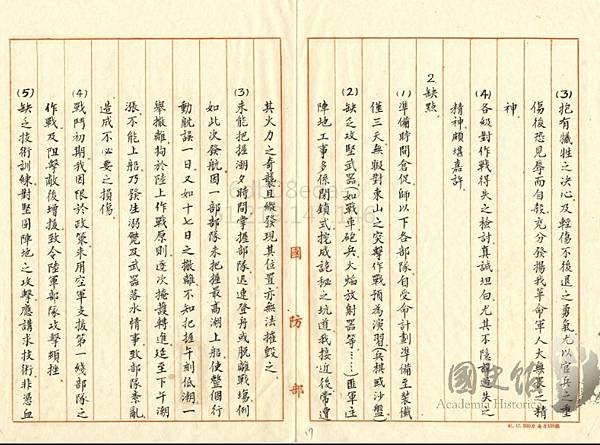 (3)抱有犧牲之決心及輕傷不後退之勇氣尤以官兵之重
傷後恐見辱而自殺充分發揚我革命軍人大無畏之精
神
(4)各級對作戰得失之檢討真誠坦白尤其不隱諱過失之
精神頗堪嘉許
2.缺點
(1)準備時間倉促師以下各部隊自受命計劃準備至裝儎
僅三天無暇對東山之突擊作戰預為演習(兵棋或沙盤)
(2)缺乏攻堅武器(如戰車砲兵火焰放射器等……)匪軍主
陣地工事多係閉鎖式挖成詭秘之坑道我接近後常遭
國防部
其火力之奇襲且縱發現其位置亦無法摧毀之
(3)未能把握潮汐時間掌握部隊迅速登舟或脫離戰場例
如此次發航因一部部隊未把握最高潮上船使整個行
動航誤一日又如十七日之撤離不知把握午刻低潮一
舉撤離拘於陸上作戰原則逐次掩護轉進延至下午潮
漲不能上船乃發生溺斃及武器落水情事致部隊紊亂
造成不必要之損傷
(4)戰鬥初期我因限於政策未用空軍支援第一線部隊之
作戰及阻擊敵後增援致令陸軍部隊攻擊頓挫
(5)缺乏技術訓練對堅固陣地之攻擊應講求技術非憑血
17
國史館
Academia Historica